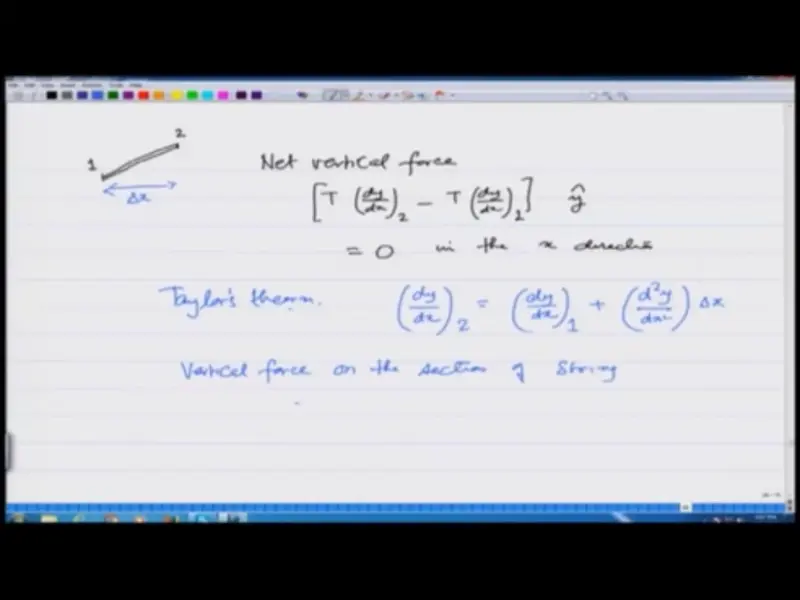 2
1
Δx
Net vertical force
[T (dy/dx)₂ − T (dy/dx)₂] ŷ
= 0 in the x direction
Taylor's theorm. (dy/dx)₂ = (dy/dx)₁ + (d²y/dx²) Δx
Vertical force on the section of string